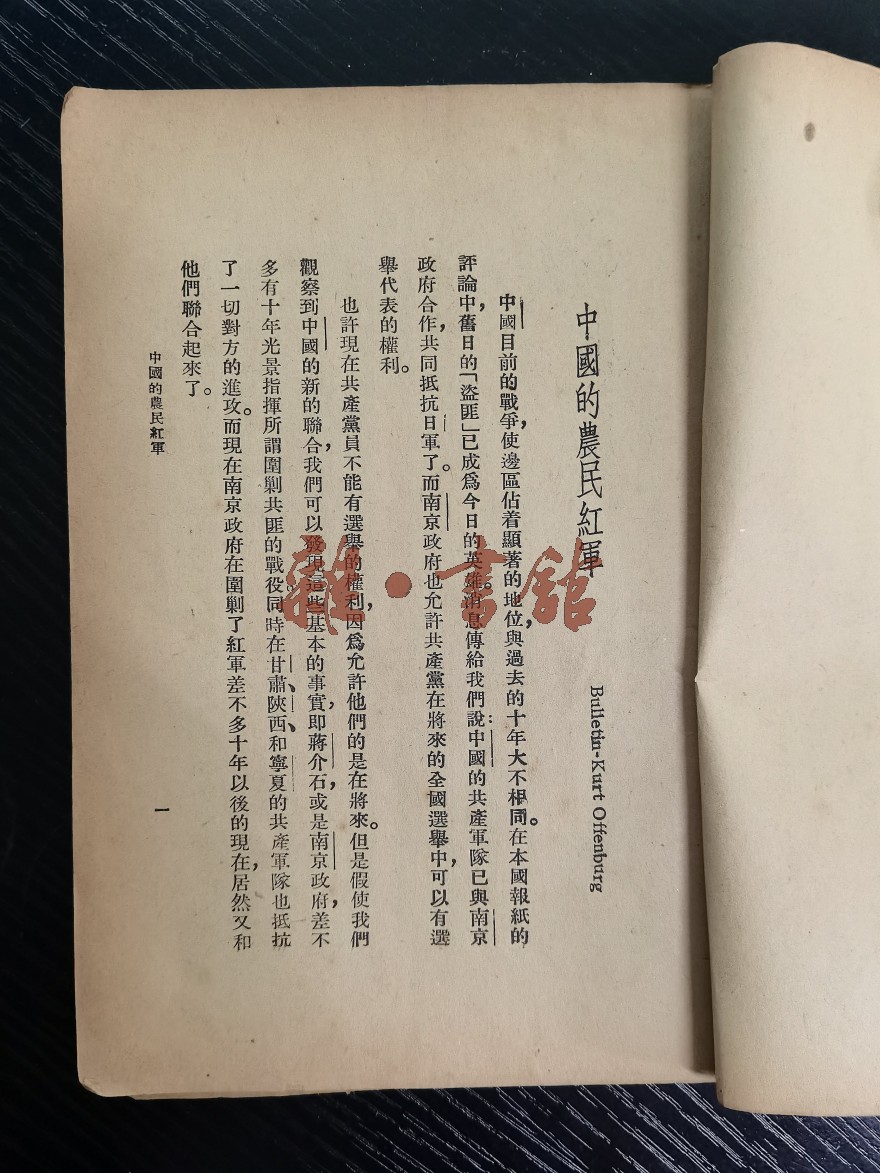 中國的農民紅軍
Bulletin-Kurt Offenburg
中國目前的戰爭，使邊區佔着顯著的地位，與過去的十年大不相同。在本國報紙的
評論中，舊日的「盜匪」已成爲今日的英雄。消息傳給我們說：中國的共產軍隊已與南京
政府合作，共同抵抗日軍了。而南京政府也允許共產黨在將來的全國選舉中，可以有選
舉代表的權利。
也許現在共產黨員不能有選舉的權利，因爲允許他們的是在將來。但是假使我們
觀察到中國的新的聯合，我們可以發現這些基本的事實，即蔣介石，或是南京政府，差不
多有十年光景指揮所謂圍剿共匪的戰役。同時在甘肅、陝西、和寧夏的共產軍隊也抵抗
了一切對方的進攻。而現在南京政府在圍剿了紅軍差不多十年以後的現在，居然又和
他們聯合起來了。
中國的農民紅軍
一
雜·書館